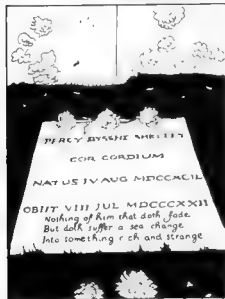 PERCY BYSSHE SHELLEY
COR CORDIUM
NATUS IV AUG MDCCXCII
OBIIT VIII JUL MDCCCXXII
Nothing of him that doth fade
But doth suffer a sea change
Into something rich and strange